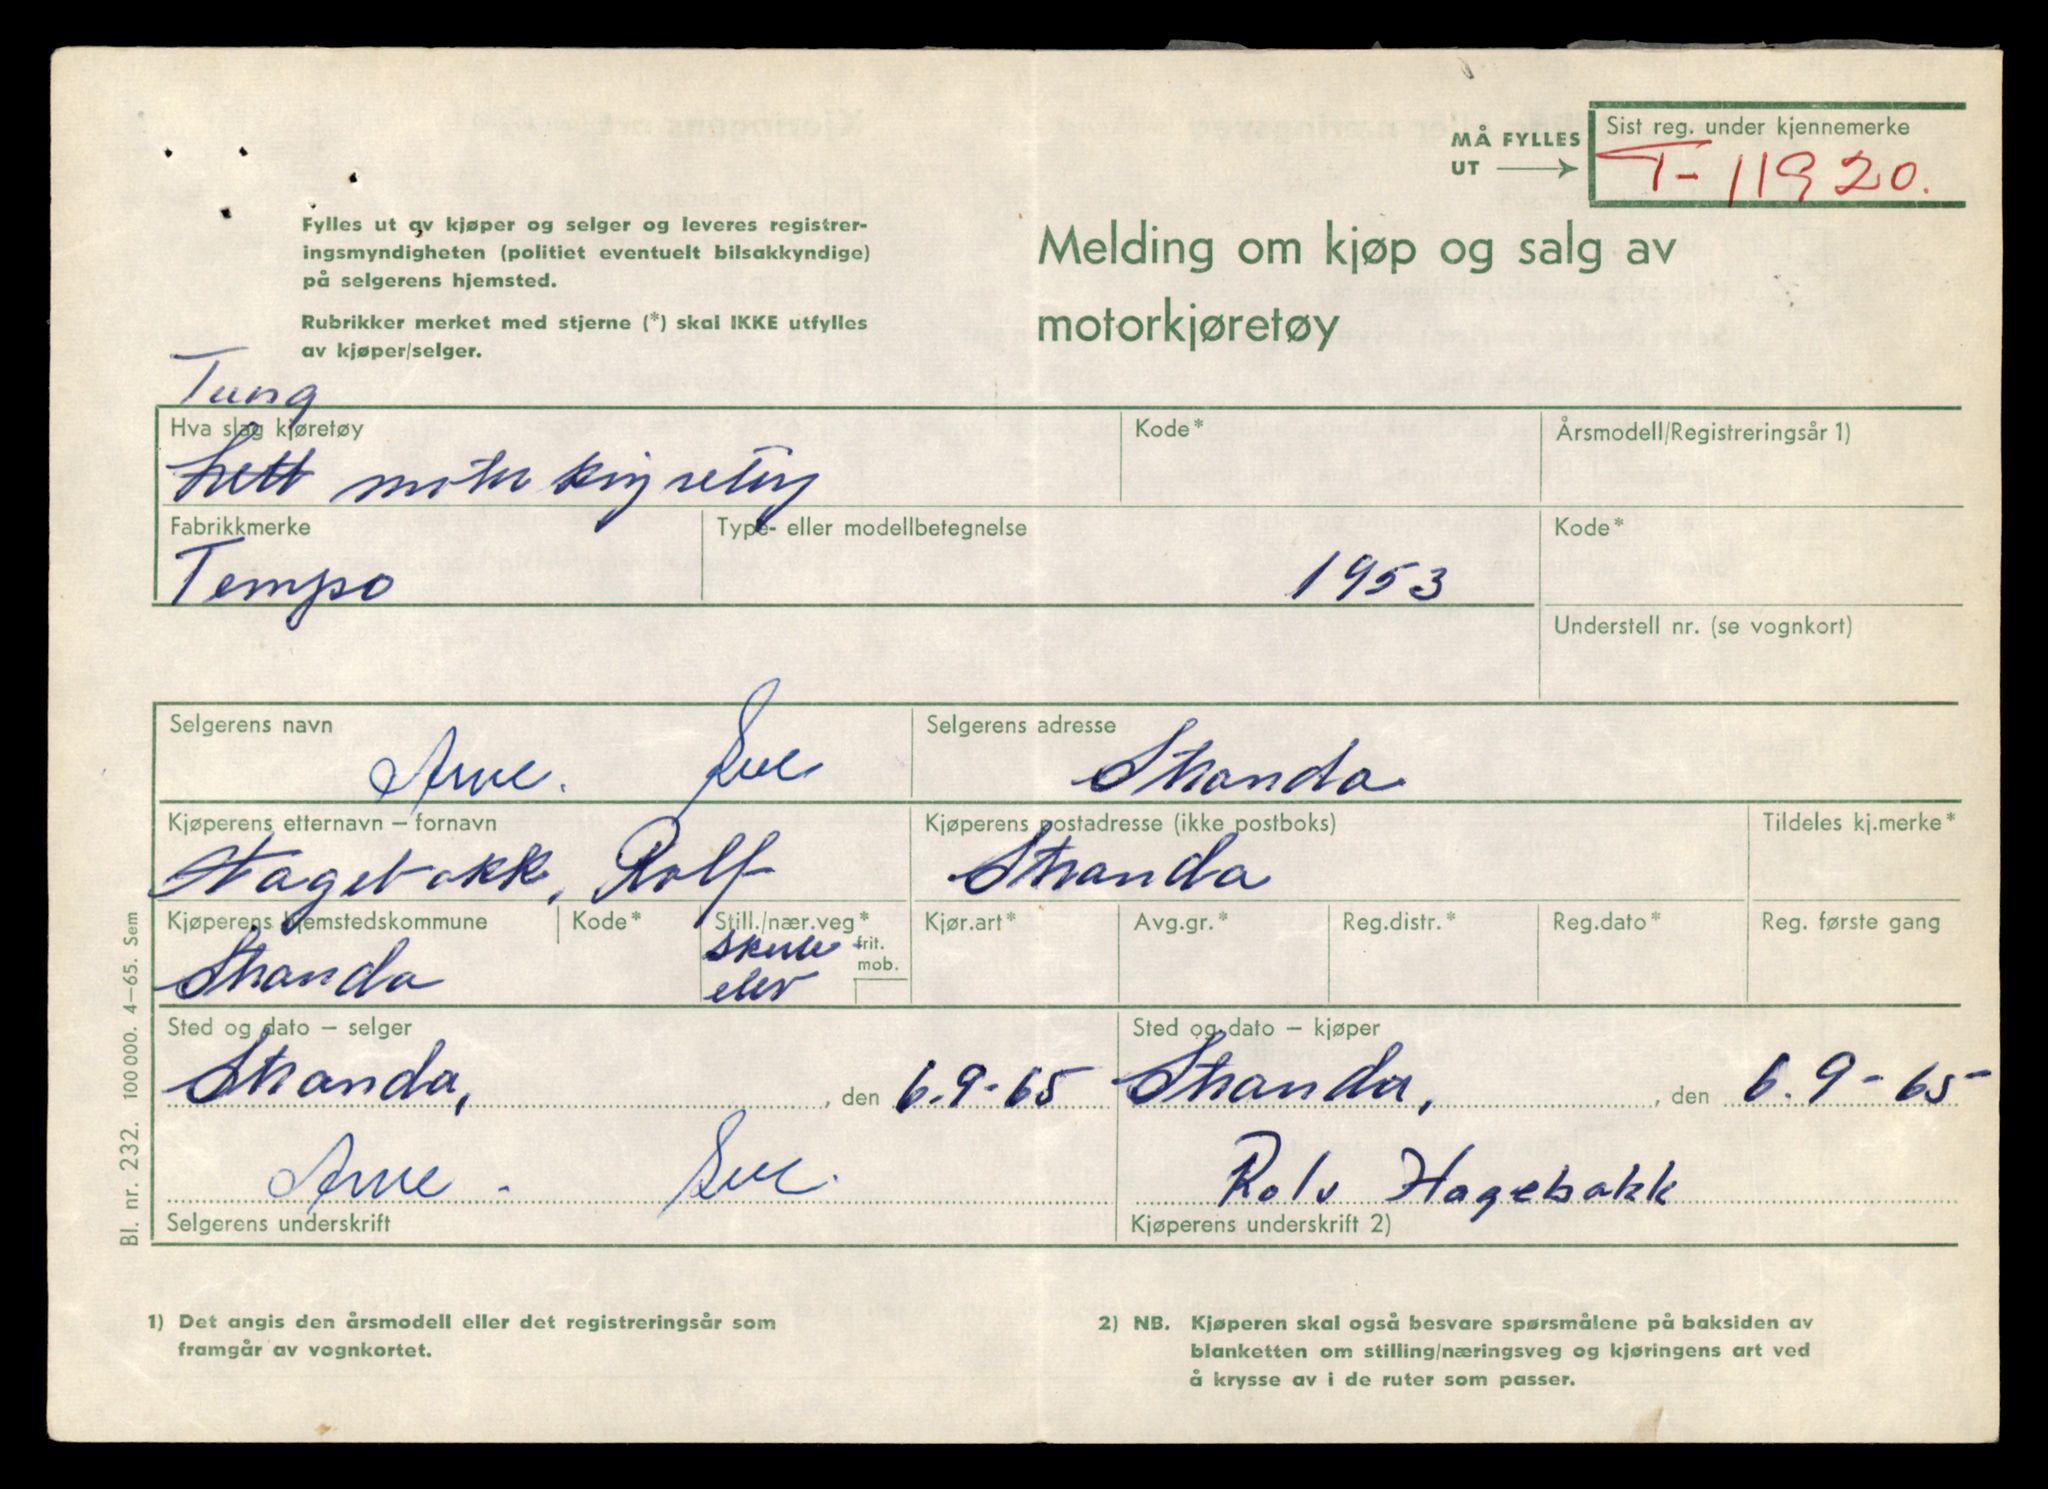 MÅ FYLLES
UT
Sist reg. under kjennemerke
T-11920.
Fylles ut av kjøper og selger og leveres registrer-
ingsmyndigheten (politiet eventuelt bilsakkyndige)
på selgerens hjemsted.
Rubrikker merket med stjerne (*) skal IKKE utfylles
av kjøper/selger.
Melding om kjøp og salg av
motorkjøretøy
Tung
Hva slag kjøretøy
Lett motorkjøretøy
Kode*
Årsmodell/Registreringsår 1)
Fabrikkmerke
Tempo
Type- eller modellbetegnelse
1953
Kode*
Understell nr. (se vognkort)
Selgerens navn
Arne
Selgerens adresse
Stranda
Kjøperens etternavn – fornavn
Hagebakk, Rolf
Kjøperens postadresse (ikke postboks)
Stranda
Tildeles kj.merke*
Kjøperens hjemstedskommune
Stranda
Kode*
Still./nær.veg*
skule
elev
frit.
mob.
Kjør.art*
Avg.gr.*
Reg.distr.*
Reg.dato*
Reg. første gang
Sted og dato – selger
Stranda, , den 6.9-65
Sted og dato – kjøper
Stranda, , den 6.9-65
Arne
Selgerens underskrift
Rolv Hagebakk
Kjøperens underskrift 2)
Bl. nr. 232. 100 000. 4–65. Sem
1) Det angis den årsmodell eller det registreringsår som
framgår av vognkortet.
2) NB. Kjøperen skal også besvare spørsmålene på baksiden av
blanketten om stilling/næringsveg og kjøringens art ved
å krysse av i de ruter som passer.